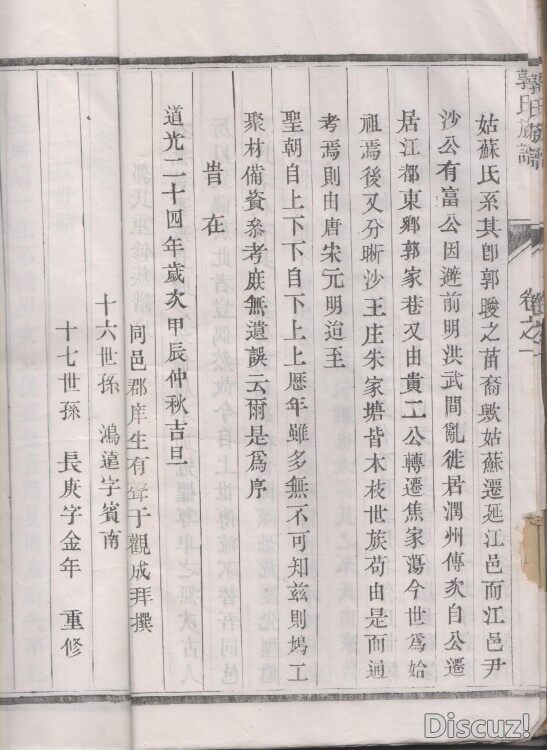 郭氏族譜
卷之一
姑蘇氏系其卽郭曖之苗裔歟姑蘇遷延江邑而江邑尹
沙公有富公因避前明洪武間亂徙居潤州傳次自公遷
居江都東鄉郭家巷又由貴二公轉遷焦家蕩今世爲始
祖焉後又分晰沙王庄朱家塘皆木枝世族苟由是而通
考焉則由唐宋元明迨至
聖朝自上下下自下上上歷年雖多無不可知茲則鳩工
聚材備資叅考庶無遺誤云爾是爲序
旹在
道光二十四年歲次甲辰仲秋吉旦
同邑郡庠生有聲于觀成拜撰
十六世孫 鴻遠字賓南
十七世孫 長庚字金年 重修
Discuz!